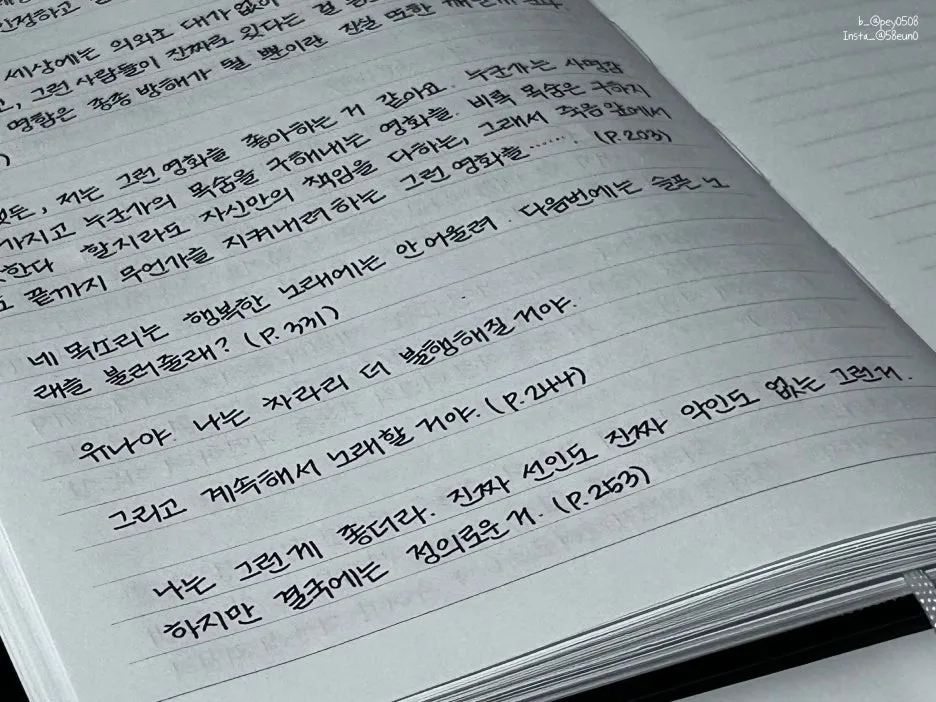 b_@pey0508
Insta_@58eun0
세상에는 의외로 대가없이
그런 사람들이 진짜로 있다는 걸
명함은 종종 방해가 될 뿐이란 진실 또한
저는 그런 영화를 좋아하는 거 같아요. 누군가는 사명감
가지고 누군가의 목숨을 구해내는 영화를. 비록 목숨은 구하지
못한다 할지라도 자신만의 책임을 다하는, 그래서 죽음 앞에서
끝까지 무언가를 지켜내려 하는 그런 영화를……. (P.203)
네 목소리는 행복한 노래에는 안 어울려. 다음번에는 슬픈 노
래를 불러줄래? (P.331)
유나야. 나는 차라리 더 불행해질 거야.
그리고 계속해서 노래할 거야. (P.244)
나는 그런 게 좋더라. 진짜 선인도 진짜 악인도 없는 그런거.
하지만 결국에는 정의로운 거. (P.253)